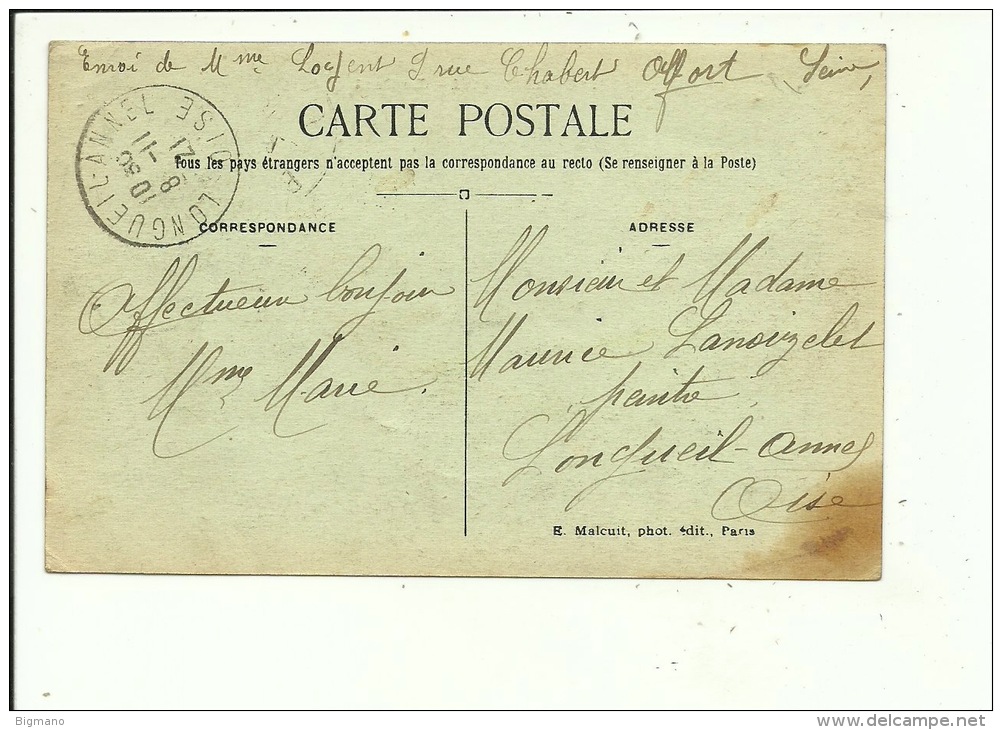 Envoi de Mme Logent 2 rue Chabert Alfort Seine,
CARTE POSTALE
Tous les pays étrangers n'acceptent pas la correspondance au recto (Se renseigner à la Poste)
LONGUEIL-ANNEL OISE
10 30
17-8
11
CORRESPONDANCE
Affectueux bonjour
Mme Marie.
ADRESSE
Monsieur et Madame
Maurice Lanoizelet
peintre
Longueil-Annel
Oise
E. Malcuit, phot. édit., Paris
Bigmano
delcampe.net